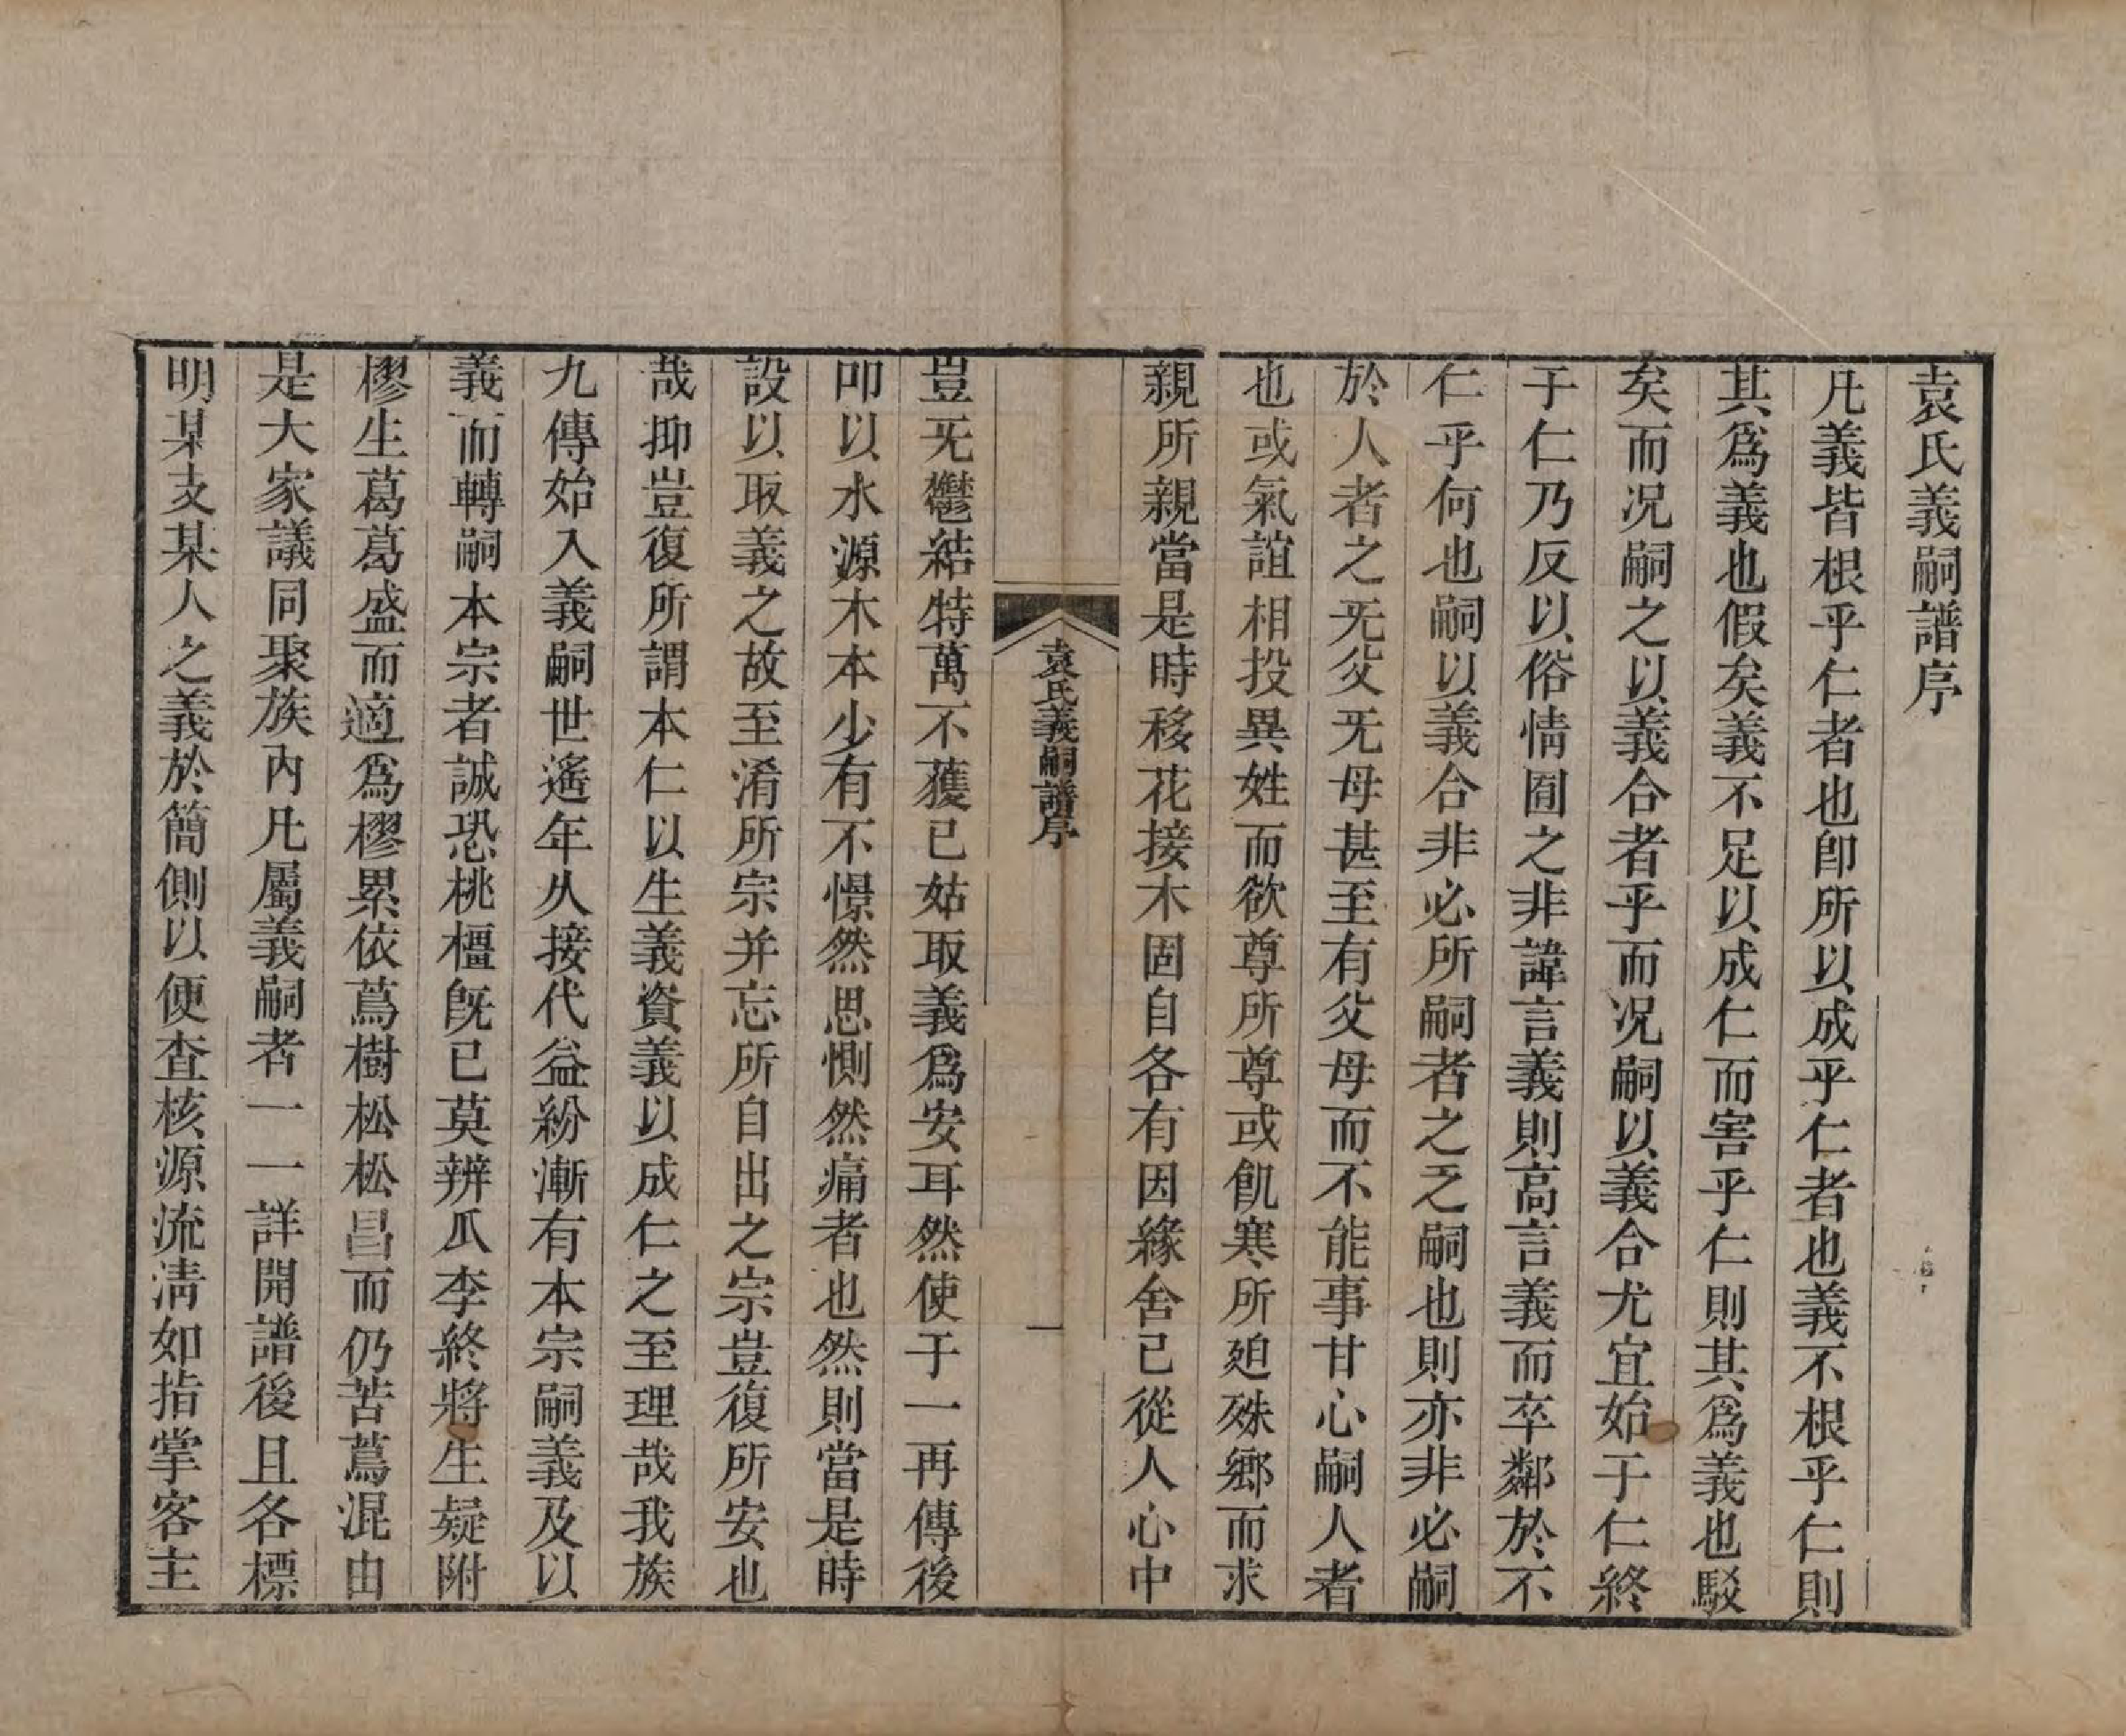 袁氏義嗣譜序
凡義皆根乎仁者也卽所以成乎仁者也義不根乎仁則
其爲義也假矣義不足以成仁而害乎仁則其爲義也駁
矣而况嗣之以義合者乎而况嗣以義合尤宜始于仁終
于仁乃反以俗情囿之非諱言義則高言義而卒鄰於不
仁乎何也嗣以義合非必所嗣者之乏嗣也則亦非必嗣
於人者之旡父旡母甚至有父母而不能事甘心嗣人者
也或氣誼相投異姓而欲尊所尊或飢寒所廹殊鄉而求
親所親當是時移花接木固自各有因緣舍己從人心中
袁氏義嗣譜序
一
豈旡鬱結特萬不獲已姑取義爲安耳然使于一再傳後
叩以水源木本少有不憬然思惻然痛者也然則當是時
設以取義之故至淆所宗并忘所自出之宗豈復所安也
哉抑豈復所謂本仁以生義資義以成仁之至理哉我族
九傳始入義嗣世遙年久接代益紛漸有本宗嗣義及以
義而轉嗣本宗者誠恐桃橿旣已莫辨瓜李終將生疑附
樛生葛葛盛而適爲樛累依蔦樹松松昌而仍苦蔦混由
是大家議同聚族內凡屬義嗣者一一詳開譜後且各標
明某支某人之義於簡側以便查核源流淸如指掌客主